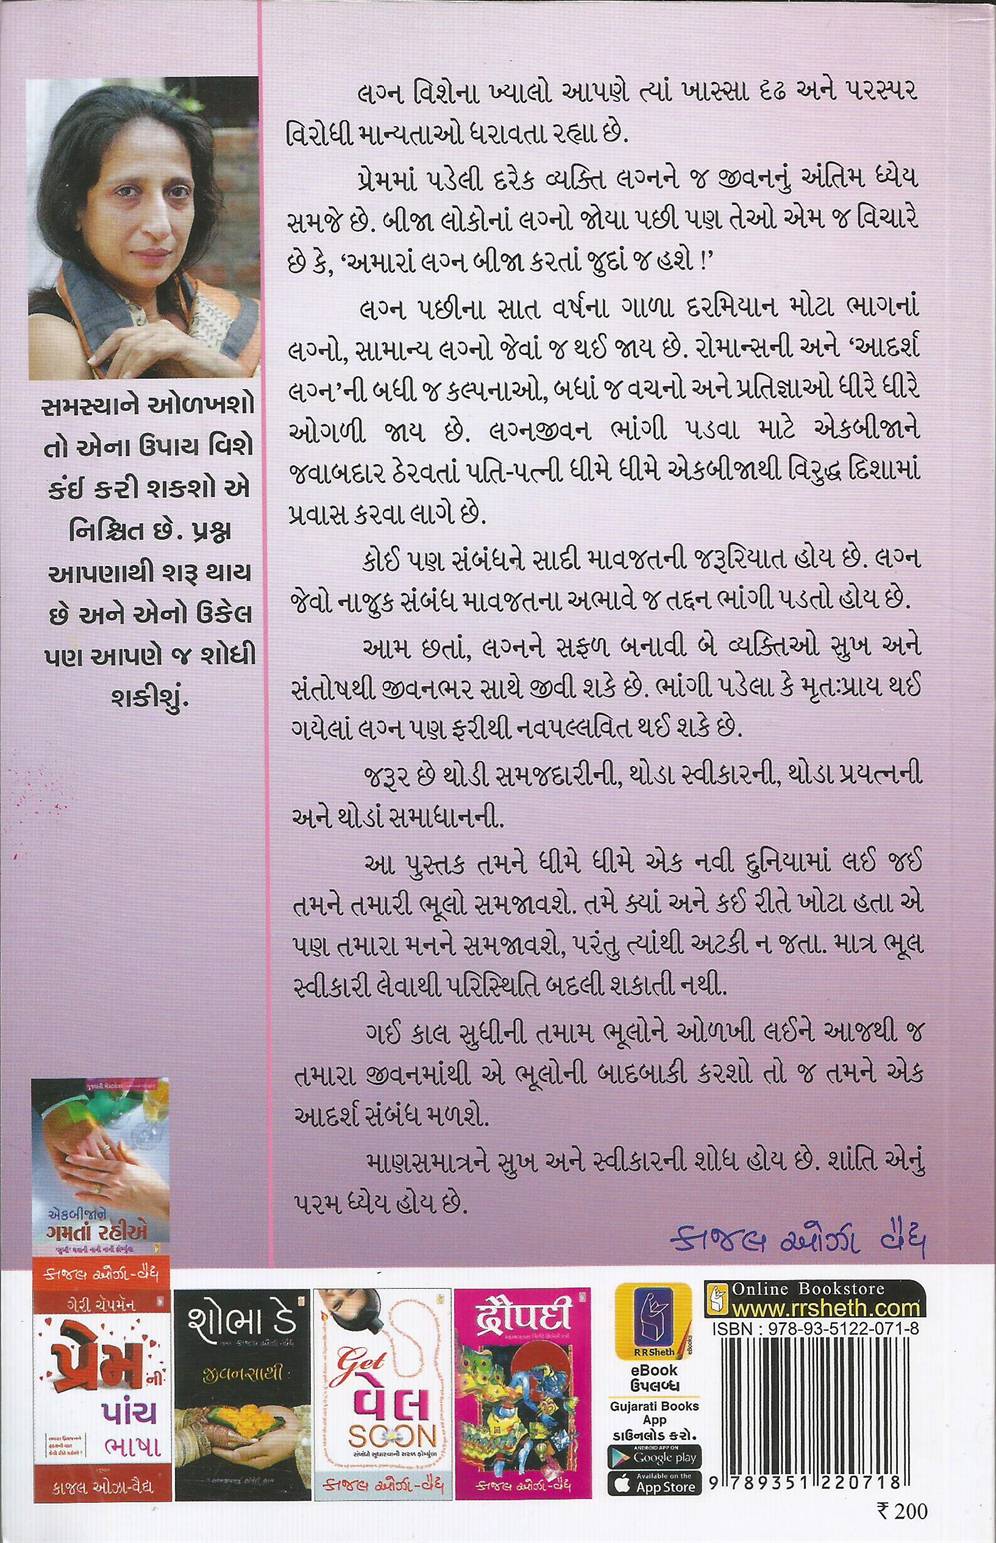 લગ્ન વિશેના ખ્યાલો આપણે ત્યાં ખાસ્સા દઢ અને પરસ્પર
વિરોધી માન્યતાઓ ધરાવતા રહ્યા છે.
પ્રેમમાં પડેલી દરેક વ્યક્તિ લગ્નને જ જીવનનું અંતિમ ધ્યેય
સમજે છે. બીજા લોકોનાં લગ્નો જોયા પછી પણ તેઓ એમ જ વિચારે
છે કે, ‘અમારાં લગ્ન બીજા કરતાં જુદાં જ હશે !’
લગ્ન પછીના સાત વર્ષના ગાળા દરમિયાન મોટા ભાગનાં
લગ્નો, સામાન્ય લગ્નો જેવાં જ થઈ જાય છે. રોમાન્સની અને ‘આદર્શ
લગ્ન’ની બધી જ કલ્પનાઓ, બધાં જ વચનો અને પ્રતિજ્ઞાઓ ધીરે ધીરે
ઓગળી જાય છે. લગ્નજીવન ભાંગી પડવા માટે એકબીજાને
જવાબદાર ઠેરવતાં પતિ-પત્ની ધીમે ધીમે એકબીજાથી વિરુદ્ધ દિશામાં
પ્રવાસ કરવા લાગે છે.
કોઈ પણ સંબંધને સાદી માવજતની જરૂરિયાત હોય છે. લગ્ન
જેવો નાજુક સંબંધ માવજતના અભાવે જ તદ્દન ભાંગી પડતો હોય છે.
આમ છતાં, લગ્નને સફળ બનાવી બે વ્યક્તિઓ સુખ અને
સંતોષથી જીવનભર સાથે જીવી શકે છે. ભાંગી પડેલા કે મૃતઃપ્રાય થઈ
ગયેલાં લગ્ન પણ ફરીથી નવપલ્લવિત થઈ શકે છે.
જરૂર છે થોડી સમજદારીની, થોડા સ્વીકારની, થોડા પ્રયત્નની
અને થોડાં સમાધાનની.
આ પુસ્તક તમને ધીમે ધીમે એક નવી દુનિયામાં લઈ જઈ
તમને તમારી ભૂલો સમજાવશે. તમે ક્યાં અને કઈ રીતે ખોટા હતા એ
પણ તમારા મનને સમજાવશે, પરંતુ ત્યાંથી અટકી ન જતા. માત્ર ભૂલ
સ્વીકારી લેવાથી પરિસ્થિતિ બદલી શકાતી નથી.
ગઈ કાલ સુધીની તમામ ભૂલોને ઓળખી લઈને આજથી જ
તમારા જીવનમાંથી એ ભૂલોની બાદબાકી કરશો તો જ તમને એક
આદર્શ સંબંધ મળશે.
માણસમાત્રને સુખ અને સ્વીકારની શોધ હોય છે. શાંતિ એનું
પરમ ધ્યેય હોય છે.
કાજલ ઓઝા વૈદ્ય
સમસ્યાને ઓળખશો
તો એના ઉપાય વિશે
કંઈ કરી શકશો એ
નિશ્ચિત છે. પ્રશ્ન
આપણાથી શરૂ થાય
છે અને એનો ઉકેલ
પણ આપણે જ શોધી
શકીશું.
એકબીજાને
ગમતાં રહીએ
કાજલ ઓઝા-વૈદ્ય
ગેરી ચૅપમૅન
પ્રેમની
પાંચ
ભાષા
કાજલ ઓઝા-વૈદ્ય
શોભા ડે
જીવનસાથી
Get
વેલ
SOON
સંબંધો સુધારવાની સરળ ફોર્મ્યુલા
કાજલ ઓઝા-વૈદ્ય
દ્રૌપદી
કાજલ ઓઝા-વૈદ્ય
R R Sheth
eBooks
eBook
ઉપલબ્ધ
Gujarati Books
App
ડાઉનલોડ કરો.
ANDROID APP ON
Google play
Available on the
App Store
Online Bookstore
www.rrsheth.com
ISBN : 978-93-5122-071-8
9 789351 220718
₹ 200